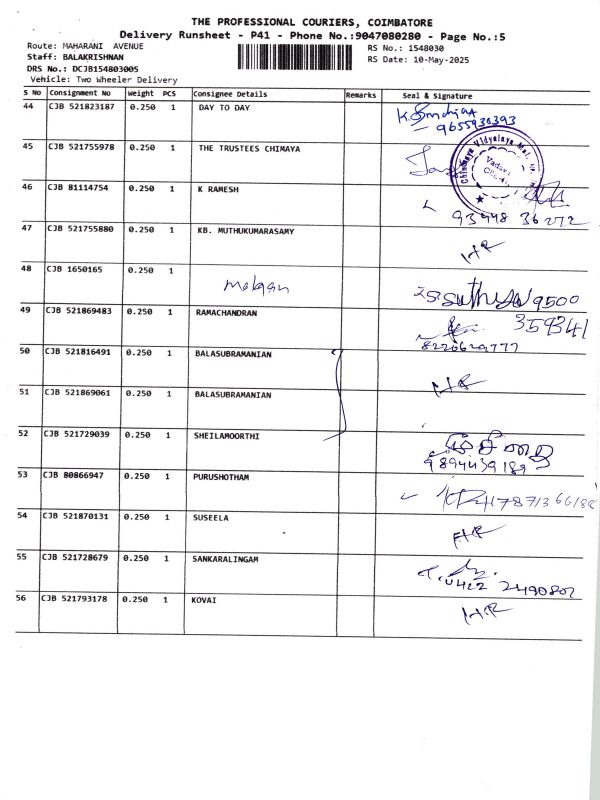 THE PROFESSIONAL COURIERS, COIMBATORE
Delivery Runsheet - P41 - Phone No.:9047080280 - Page No.:5
Route: MAHARANI AVENUE RS No.: 1548030
Staff: BALAKRISHNAN RS Date: 10-May-2025
DRS No.: DCJB154803005
Vehicle: Two Wheeler Delivery
S No Consignment No Weight PCS Consignee Details Remarks Seal & Signature
44 CJB 521823187 0.250 1 DAY TO DAY
9655936393
45 CJB 521755978 0.250 1 THE TRUSTEES CHIMAYA
Chinmaya Vidyalaya
46 CJB 81114754 0.250 1 K RAMESH
93448 36272
47 CJB 521755880 0.250 1 KB. MUTHUKUMARASAMY
H/R
48 CJB 1650165 0.250 1
9500
49 CJB 521869483 0.250 1 RAMACHANDRAN
359341
8220629777
50 CJB 521816491 0.250 1 BALASUBRAMANIAN
H/R
51 CJB 521869061 0.250 1 BALASUBRAMANIAN
52 CJB 521729039 0.250 1 SHEILAMOORTHI
9894439189
53 CJB 80866947 0.250 1 PURUSHOTHAM
54 CJB 521870131 0.250 1 SUSEELA
H/R
55 CJB 521728679 0.250 1 SANKARALINGAM
0422 2490802
56 CJB 521793178 0.250 1 KOVAI
H/R